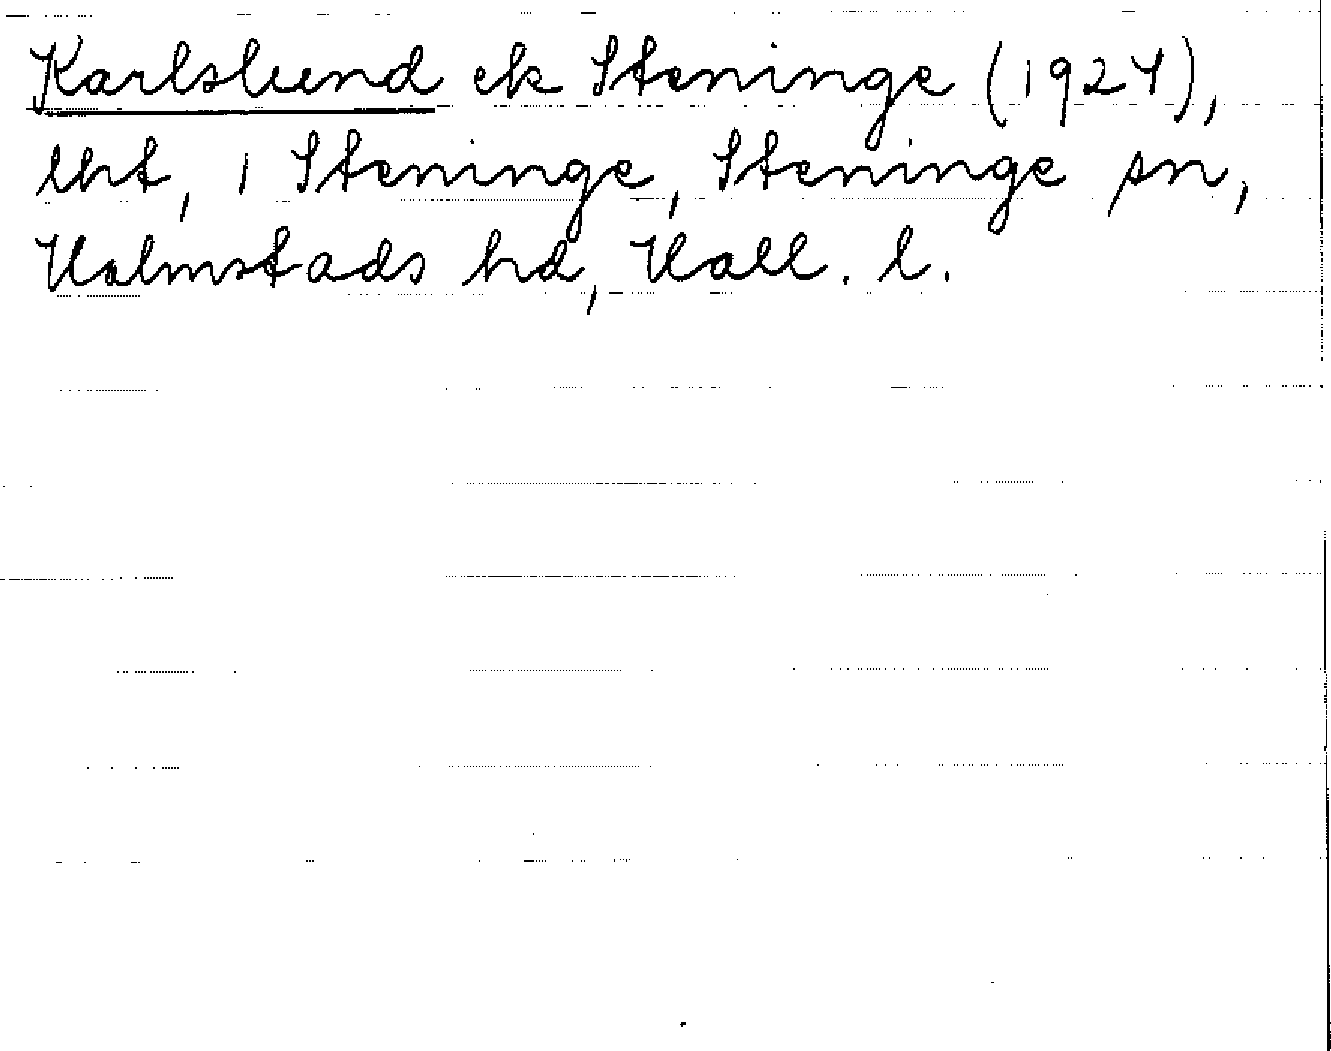 Karlslund ek Steninge (1924),
lht, i Steninge, Steninge sn,
Halmstads hd, Hall. l.